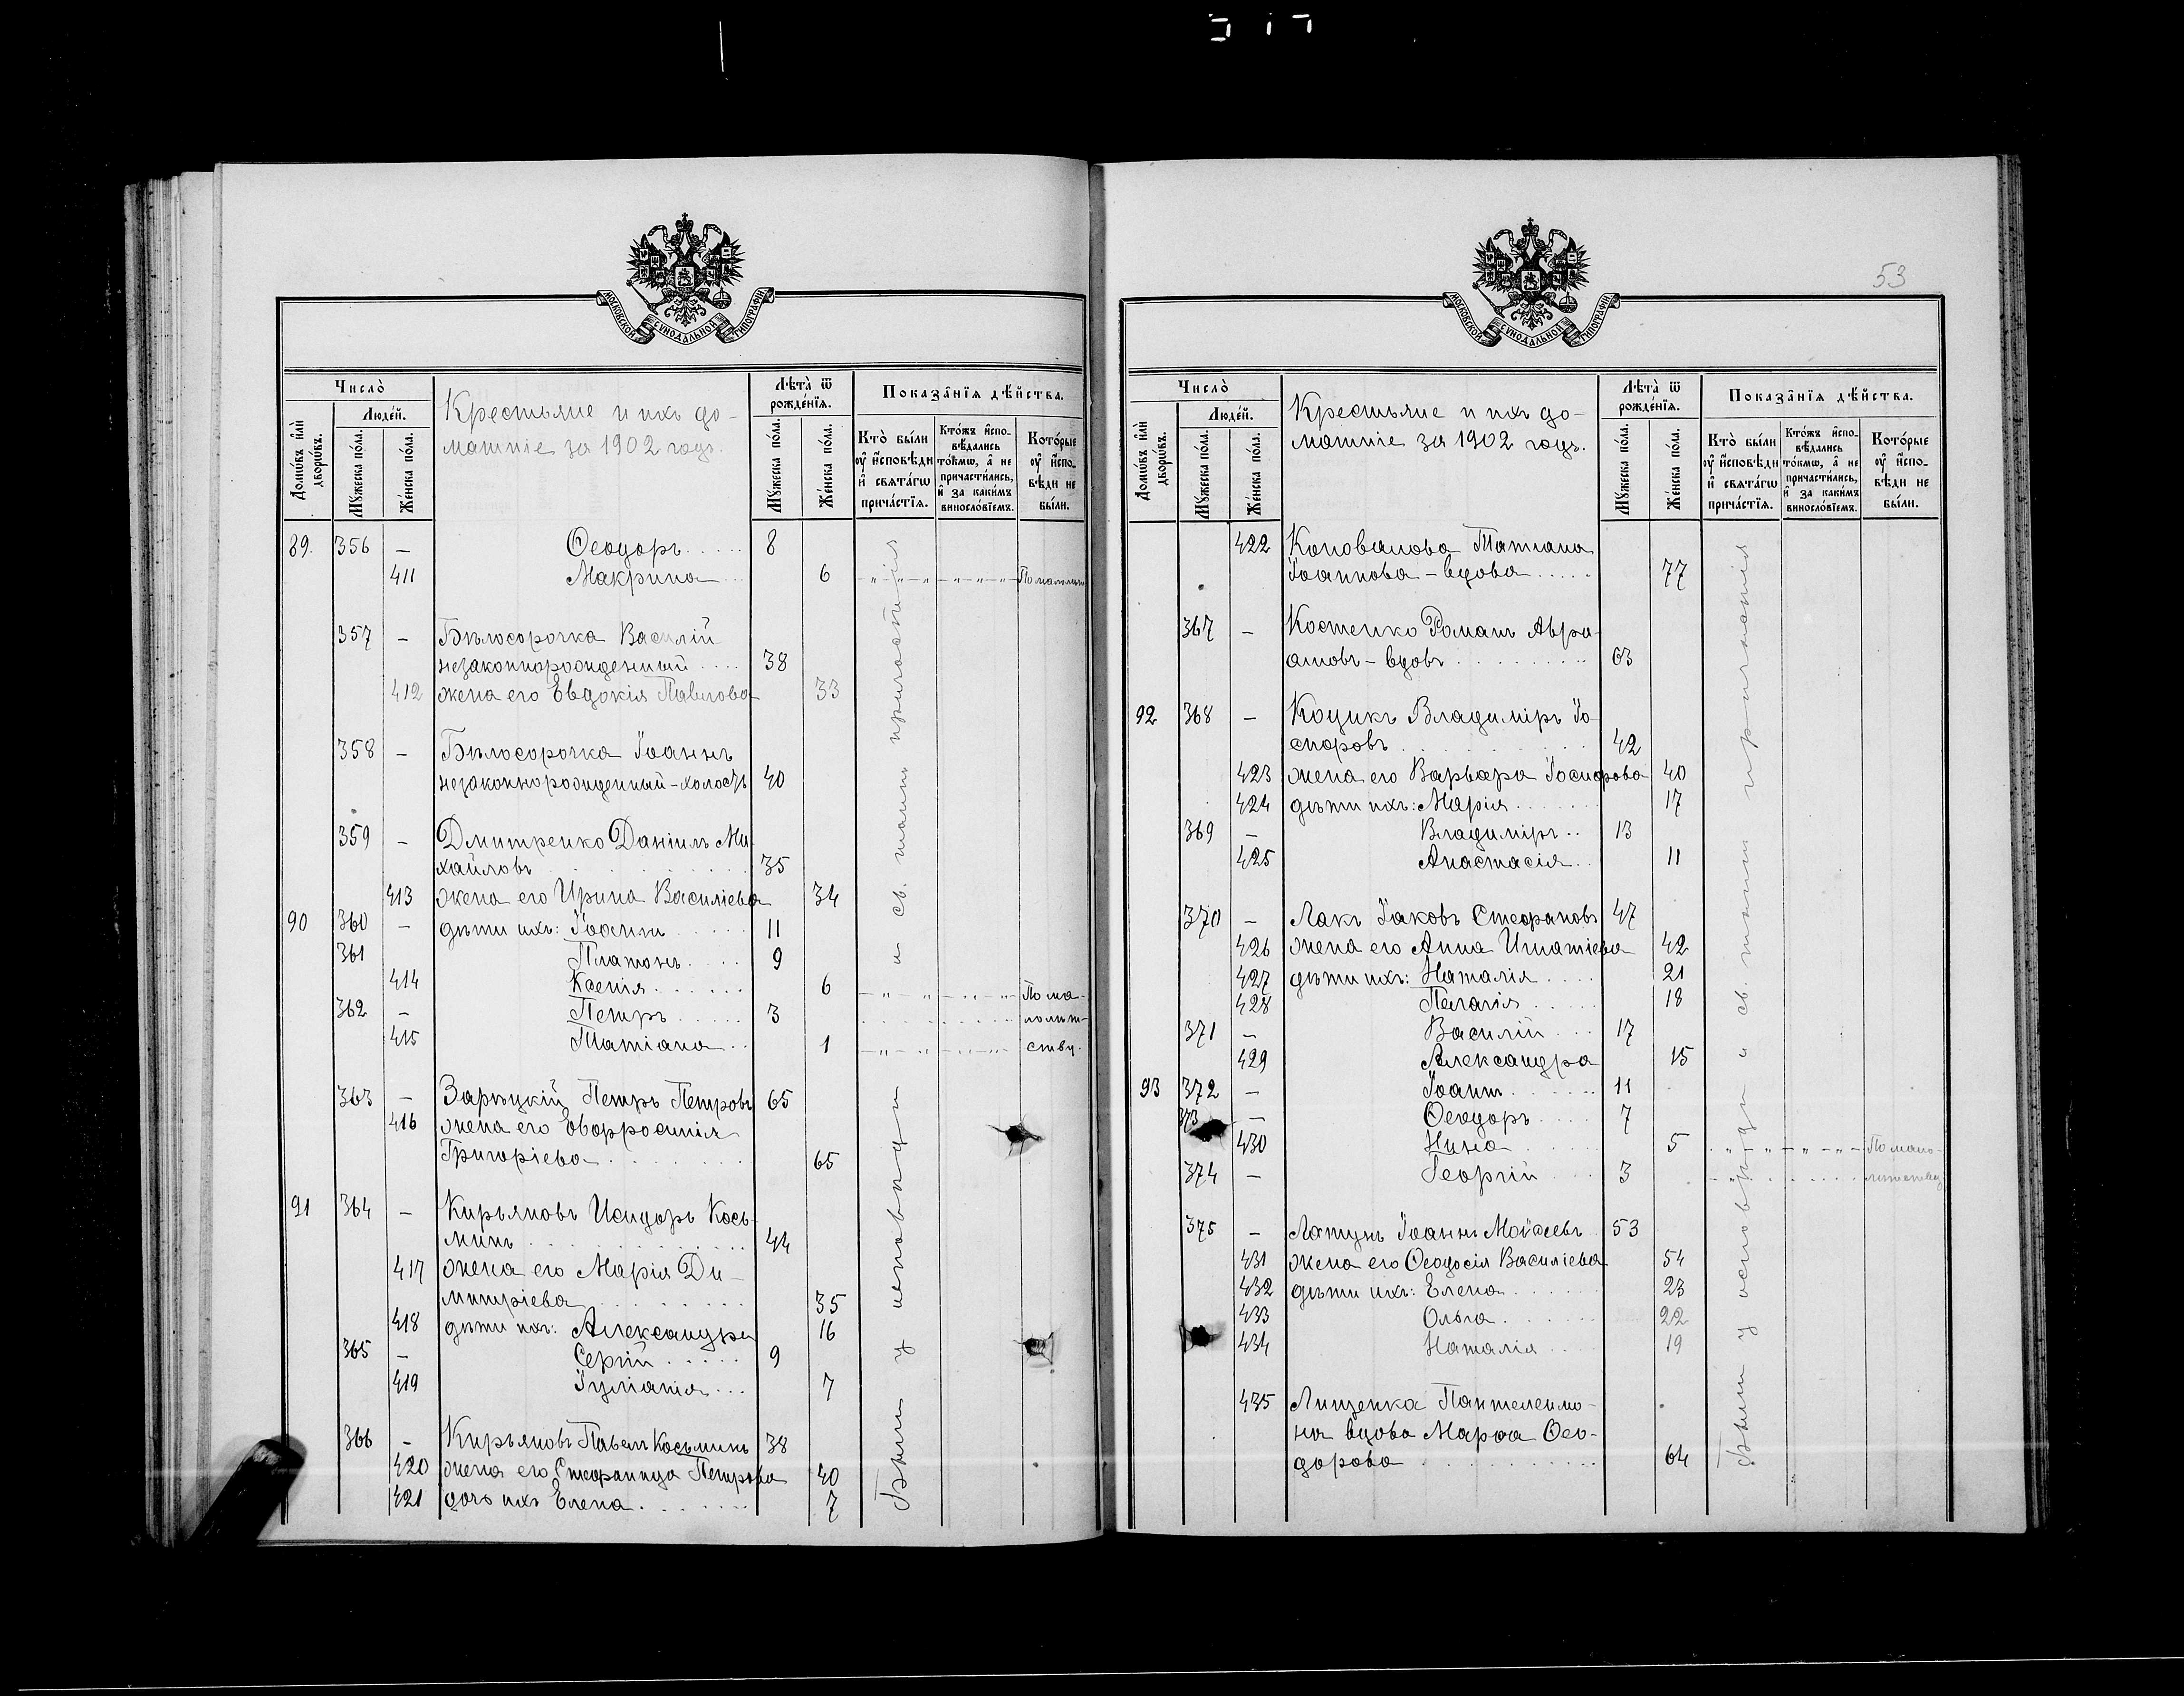 МОСКОВСКОЙ СѴНОДАЛЬНОЙ ТИПОГРАФІИ
Число̀
Домѡвъ и҆лѝ дворѡвъ.
Люде́й.
Мꙋ́жеска по́ла.
Же́нска по́ла.
Крестьяне и ихъ до-
машніе за 1902 годъ.
Лѣта̀ ѿ рожде́нїѧ.
Мꙋ́жеска по́ла.
Же́нска по́ла.
Показа̑нїѧ дѣ́йства.
Кто̀ бы́ли оу҆ и҆сповѣ́ди и҆ свѧта́гѡ прича́стїѧ.
Кто́жъ и҆спо- вѣ́дались то́кмѡ, а҆ не причасти́лись, и҆ за каки́мъ винослові́емъ.
Кото́рые оу҆ и҆спо- вѣ́ди не бы́ли.
89. 356 – Ѳеодоръ..... 8
411 Макрина... 6 По малолѣт
357 – Бѣлосорочка Василій
незаконнорожденный.... 38
412 жена его Евдокія Павлова 33
358 – Бѣлосорочка Іоаннъ
незаконнорожденный – холостъ 40
359 – Дмитренко Даніилъ Ми-
хайловъ 35
413 жена его Ирина Василіева 34
90 360 – дѣти ихъ: Іоаннъ 11
361 Платонъ.... 9
414 Ксенія...... 6 По ма-
362 – Петръ..... 3 лолѣт-
415 Татіана.. 1 ству.
363 – Зарѣцкій Петръ Петровъ 65
416 жена его Евфросинія
Григоріева 65
91 364 – Кирьяновъ Исидоръ Кось-
минъ 44
417 жена его Марія Ди-
митріева 35
418 дѣти ихъ: Александра 16
365 – Сергій..... 9
419 Іуліанія... 7
366 – Кирьяновъ Павелъ Косьминъ 38
420 жена его Стефанида Петрова 40
421 дочь ихъ Елена....... 7
Были у исповѣди и св. таинъ причастія
53
МОСКОВСКОЙ СѴНОДАЛЬНОЙ ТИПОГРАФІИ
Число̀
Домѡвъ и҆лѝ дворѡвъ.
Люде́й.
Мꙋ́жеска по́ла.
Же́нска по́ла.
Крестьяне и ихъ до-
машніе за 1902 годъ.
Лѣта̀ ѿ рожде́нїѧ.
Мꙋ́жеска по́ла.
Же́нска по́ла.
Показа̑нїѧ дѣ́йства.
Кто̀ бы́ли оу҆ и҆сповѣ́ди и҆ свѧта́гѡ прича́стїѧ.
Кто́жъ и҆спо- вѣ́дались то́кмѡ, а҆ не причасти́лись, и҆ за каки́мъ винослові́емъ.
Кото́рые оу҆ и҆спо- вѣ́ди не бы́ли.
422 Коновалова Татіана
Іоаннова – вдова...... 77
367 – Костенко Романъ Авра-
амовъ – вдовъ 63
92 368 – Коцикъ Владиміръ Іо-
сифовъ 42
423 жена его Варвара Іосифова 40
424 дѣти ихъ: Марія 17
369 – Владиміръ.. 13
425 Анастасія.. 11
370 – Лакъ Іаковъ Стефановъ 47
426 жена его Анна Игнатіева 42
427 дѣти ихъ: Наталія.... 21
428 Пелагія..... 18
371 – Василій... 17
429 Александра 15
93 372 – Іоаннъ...... 11
373 – Ѳеодоръ.... 7
430 Нина 5 По мало-
374 – Георгій 3 лѣтству
375 – Латунъ Іоаннъ Моѵсеевъ 53
431 жена его Ѳеодосія Василіева 54
432 дѣти ихъ: Елена...... 23
433 Ольга...... 22
434 Наталія.... 19
435 Лищенка Пантелеимо-
на вдова Марѳа Ѳео-
дорова 64
Были у исповѣди и св. таинъ причастія